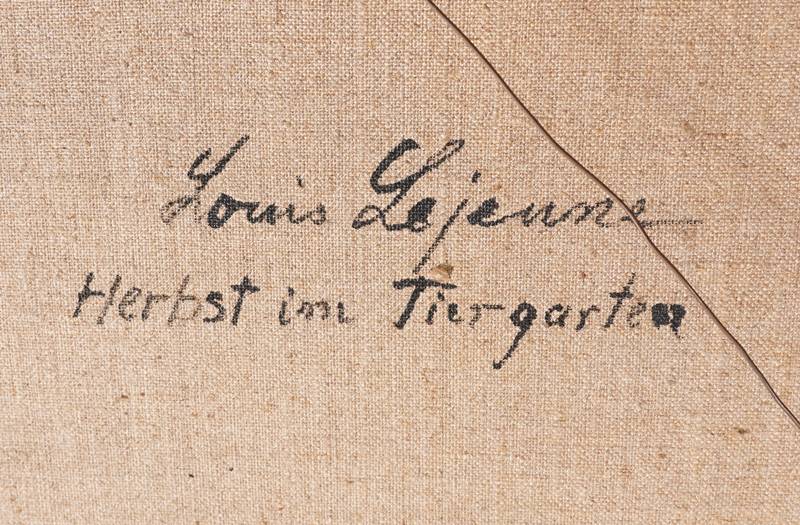 Louis Lejeune
Herbst im Tiergarten